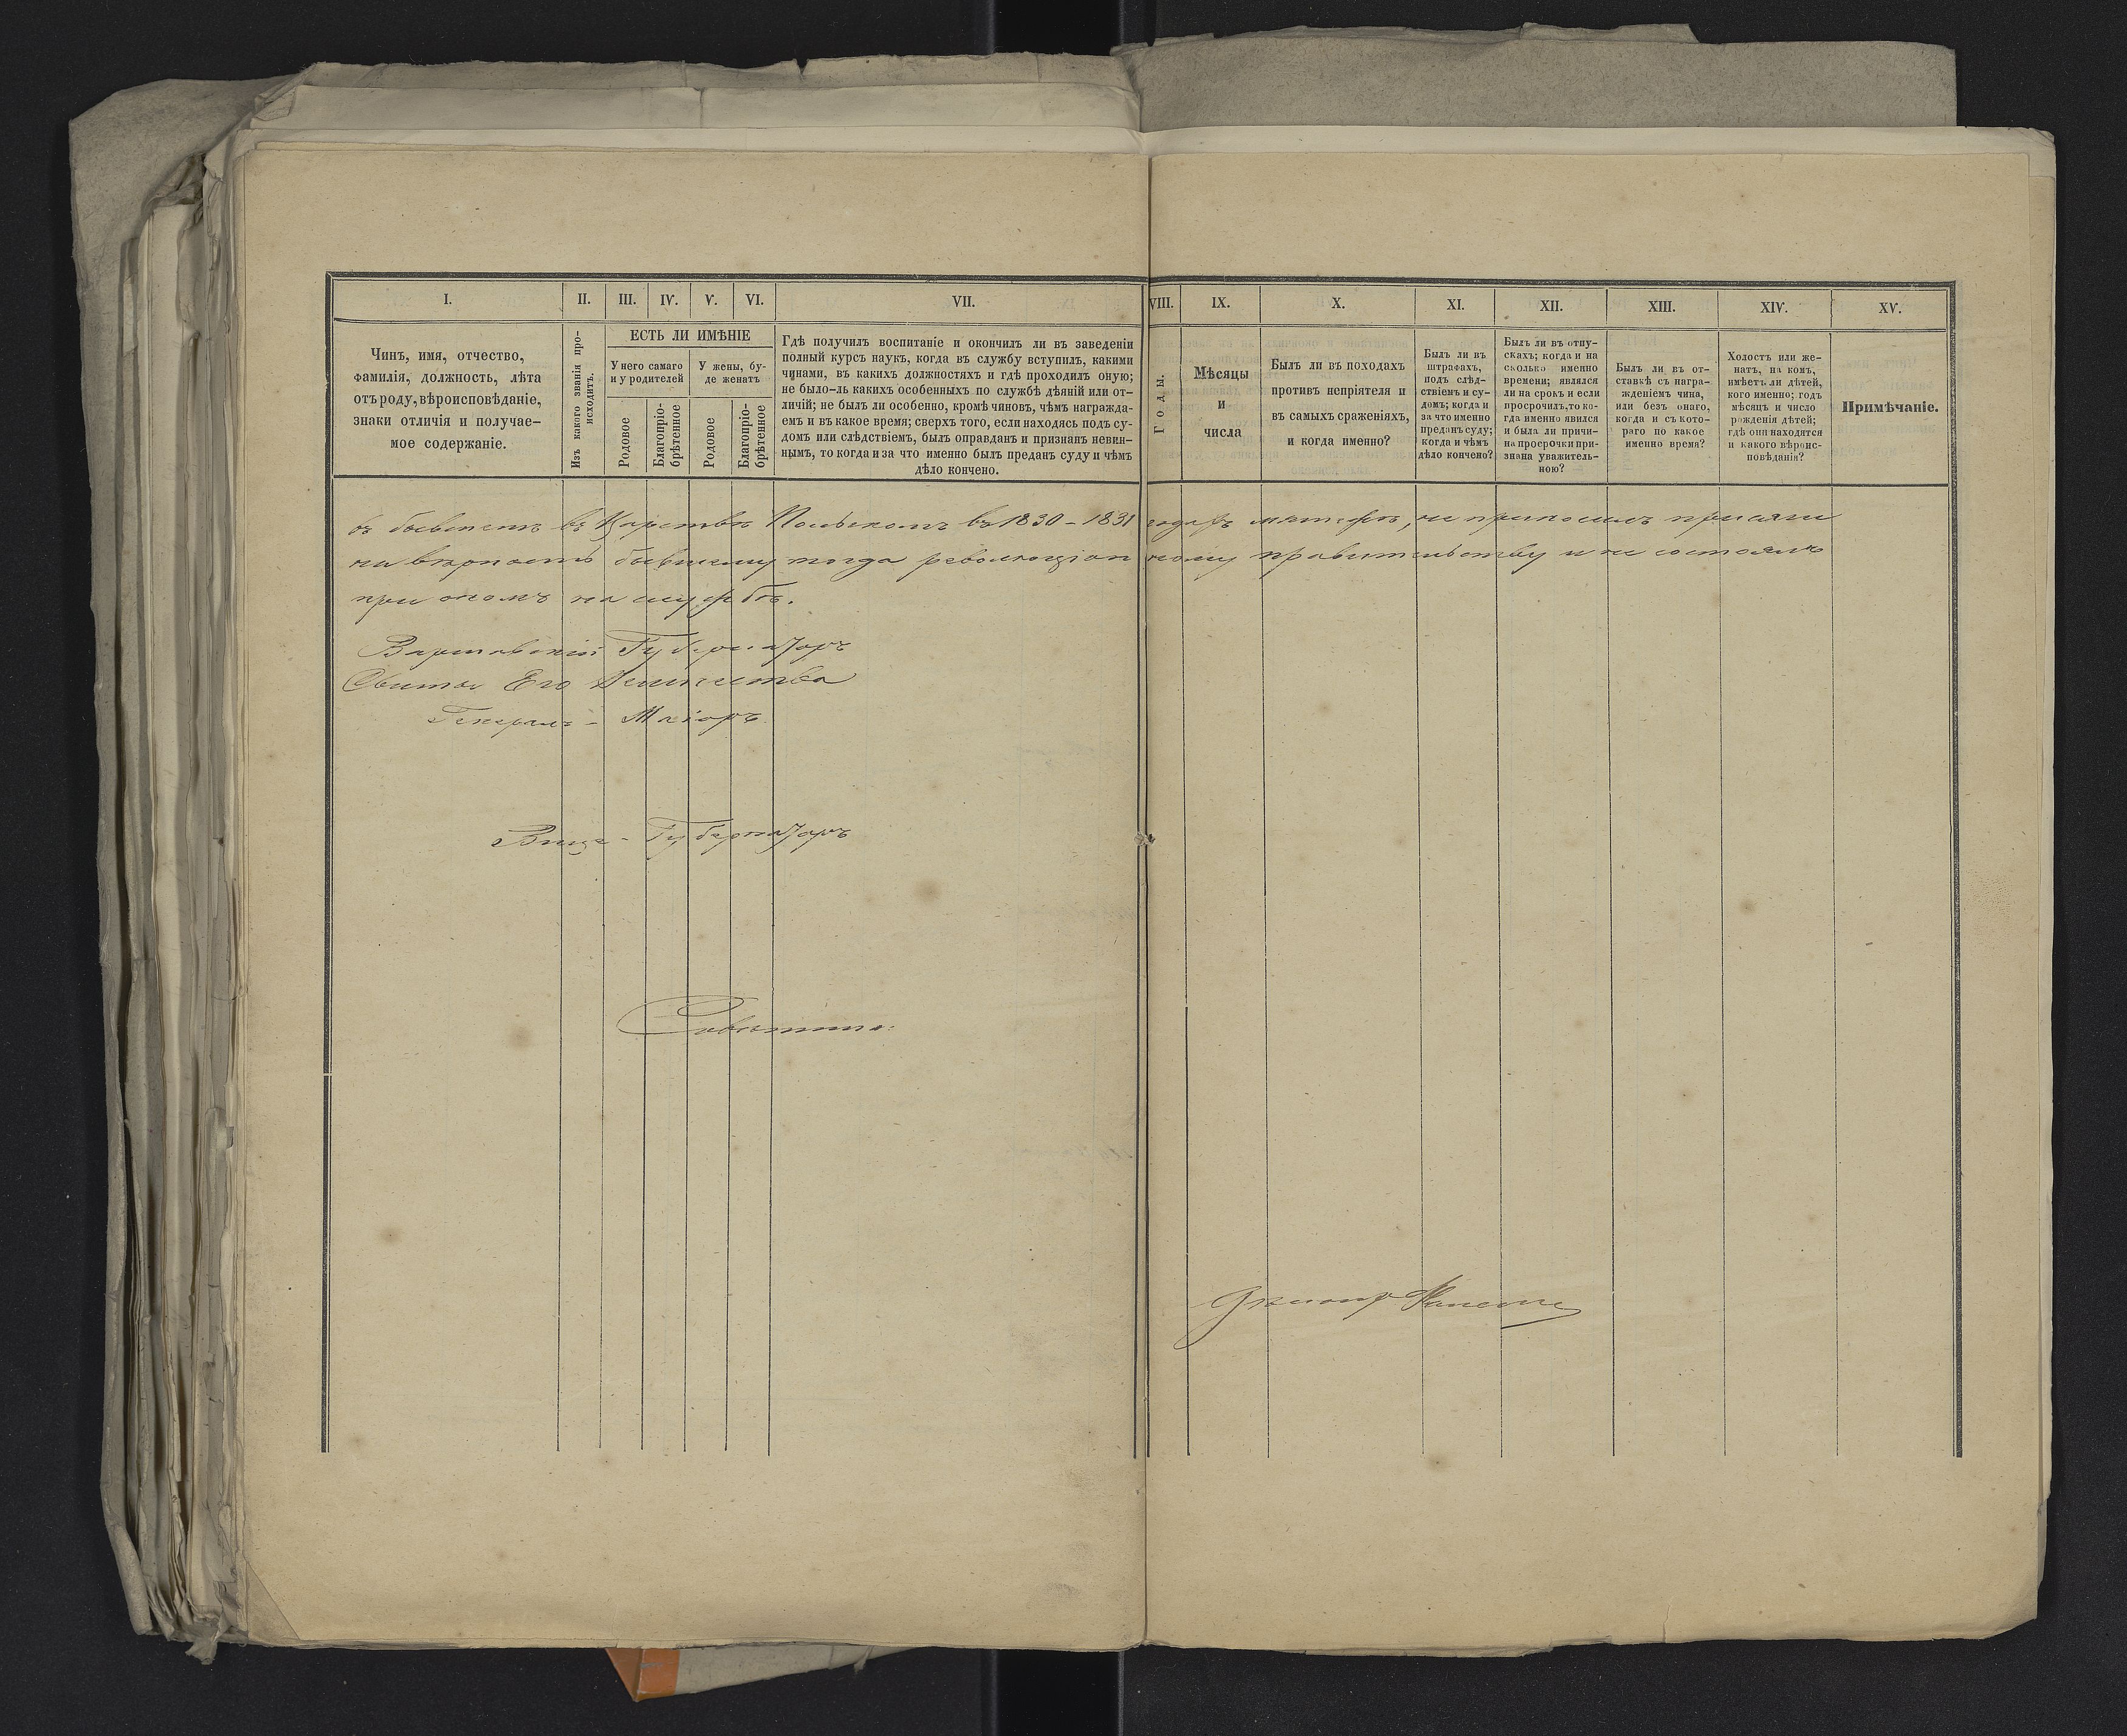 I. II. III. IV. V. VI. VII. VIII. IX. X. XI. XII. XIII. XIV. XV.
Чинъ, имя, отчество,
фамилія, должность, лѣта
отъ роду, вѣроисповѣданіе,
знаки отличія и получае-
мое содержаніе.
Изъ какого званія про-
исходитъ.
ЕСТЬ ЛИ ИМѢНІЕ
У него самаго
и у родителей
У жены, бу-
де женатъ
Родовое
Благопріо-
брѣтенное
Родовое
Благопріо-
брѣтенное
Гдѣ получилъ воспитаніе и окончилъ ли въ заведеніи
полный курсъ наукъ, когда въ службу вступилъ, какими
чинами, въ какихъ должностяхъ и гдѣ проходилъ оную;
не было-ль какихъ особенныхъ по службѣ дѣяній или от-
личій; не былъ ли особенно, кромѣ чиновъ, чѣмъ награжда-
емъ и въ какое время; сверхъ того, если находясь подъ су-
домъ или слѣдствіемъ, былъ оправданъ и признанъ невин-
нымъ, то когда и за что именно былъ преданъ суду и чѣмъ
дѣло кончено.
Годы.
Мѣсяцы
и
числа
Былъ ли въ походахъ
противъ непріятеля и
въ самыхъ сраженіяхъ,
и когда именно?
Былъ ли въ
штрафахъ,
подъ слѣд-
ствіемъ и су-
домъ; когда и
за что именно
преданъ суду;
когда и чѣмъ
дѣло кончено?
Былъ ли въ отпу-
скахъ; когда и на
сколько именно
времени; являлся
ли на срокъ и если
просрочилъ, то ко-
гда именно явился
и была ли причи-
на просрочки при-
знана уважитель-
ною?
Былъ ли въ от-
ставкѣ съ награ-
жденіемъ чина,
или безъ онаго,
когда и съ кото-
раго по какое
именно время?
Холостъ или же-
натъ, на комъ,
имѣетъ ли дѣтей,
кого именно; годъ
мѣсяцъ и число
рожденія дѣтей;
гдѣ они находятся
и какого вѣроис-
повѣданія?
Примѣчаніе.
въ бывшемъ въ Царствѣ Польскомъ въ 1830-1831 годахъ мятежѣ, не приносилъ присяги
на вѣрность бывшему тогда революціонному правительству и не состоялъ
при ономъ на службѣ.
Варшавскій Губернаторъ
Свиты Его Величества
Генералъ-Маіоръ
Вице-Губернаторъ